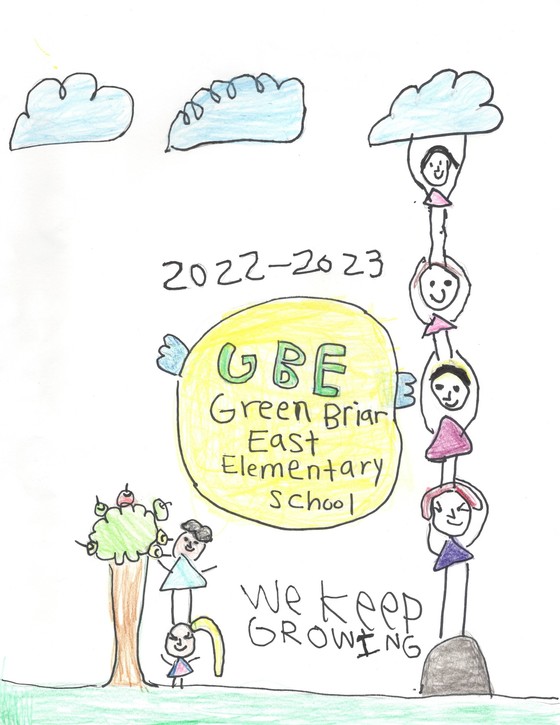 2022-2023
GBE
Green Briar
East
Elementary
School
We keep
GROWING